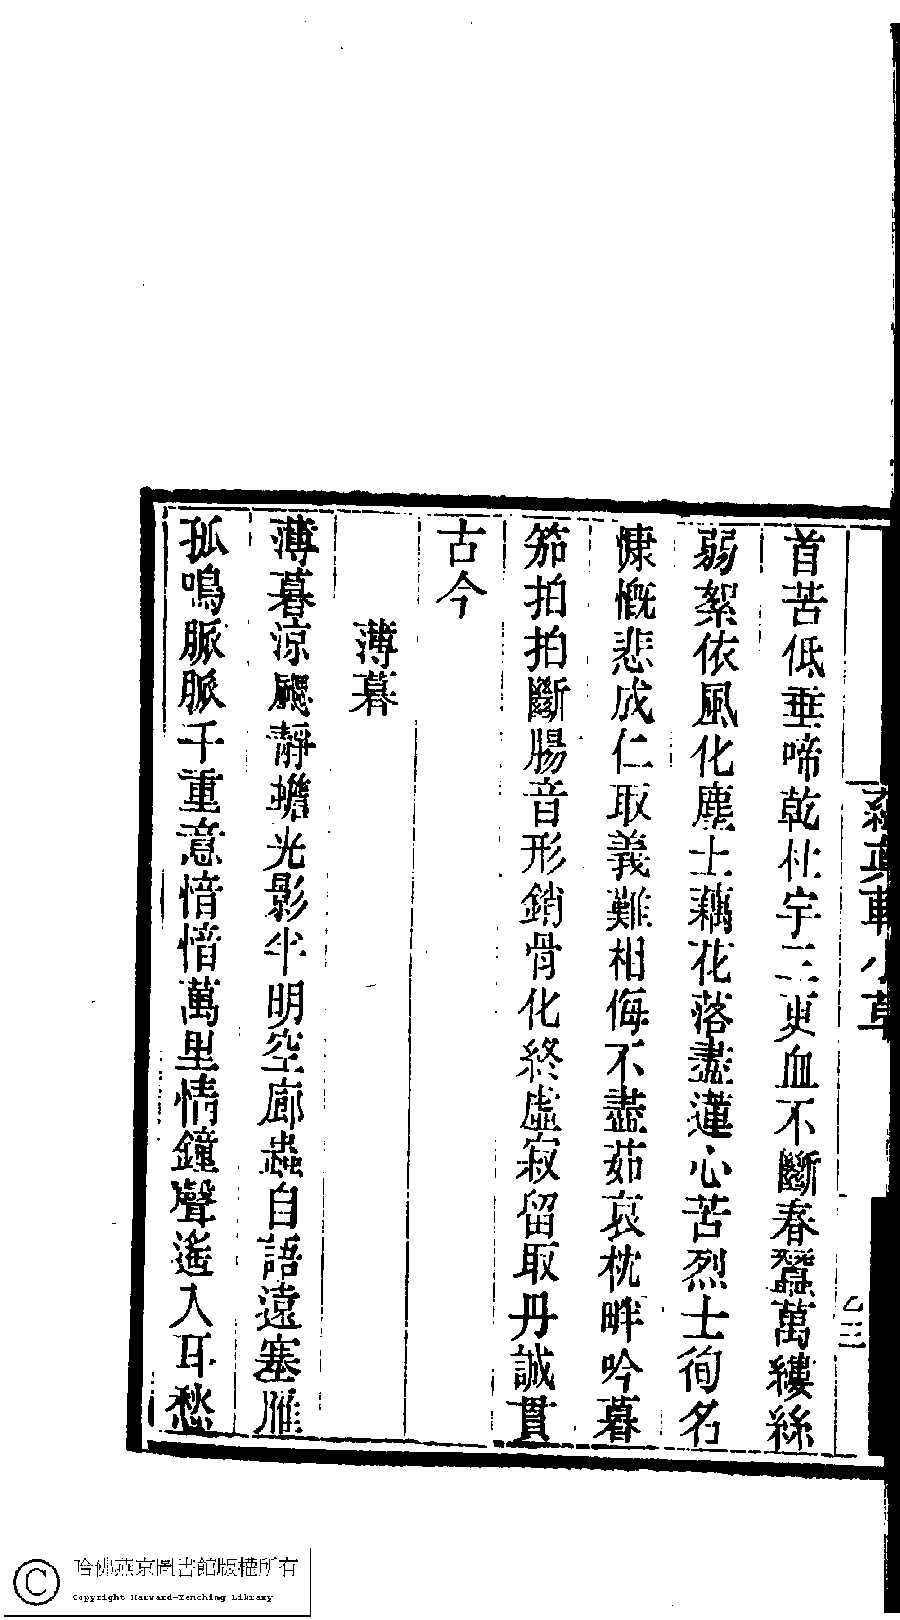 首苦低垂啼乾杜宇三更血不斷春蠶萬縷絲
弱絮依風化塵土藕花落盡蓮心苦烈士徇名
慷慨悲成仁取義難相侮不盡茹哀枕畔吟暮
笳拍拍斷腸音形銷骨化終虛寂留取丹誠貫
古今
薄暮
薄暮涼颸靜蟾光影半明空廊蟲自語遠塞雁
孤鳴脈脈千重意愔愔萬里情鐘聲遙入耳愁
乙三
哈佛燕京圖書館版權所有
Copyright Harvard-Yenching Library